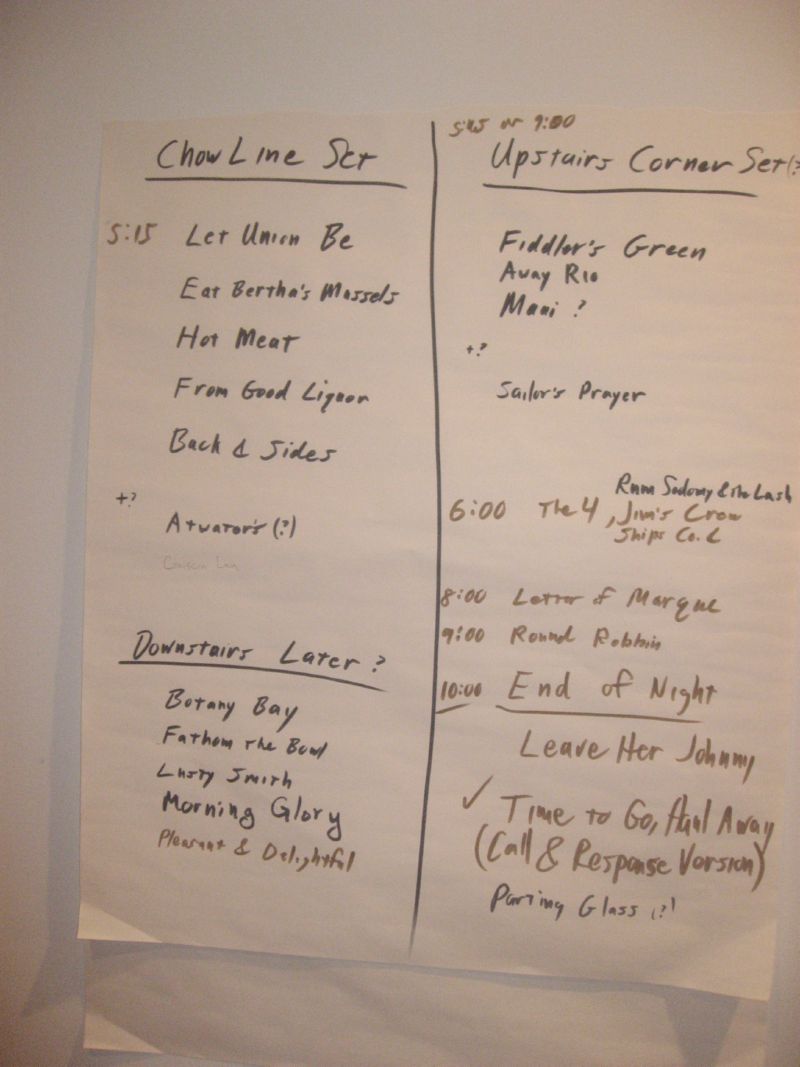 Chow Line Set
5:15 Let Union Be
Eat Bertha's Mussels
Hot Meat
From Good Liquor
Back & Sides
+?
Atwater's (?)
Downstairs Later ?
Botany Bay
Fathom the Bowl
Lusty Smith
Morning Glory
Pleasant & Delightful
5:45 or 9:00
Upstairs Corner Set (?
Fiddler's Green
Away Rio
Maui ?
+?
Sailor's Prayer
Rum Sodomy & the Lash
6:00 The 4, Jim's Crow
Ships Co. C
8:00 Letter of Marque
9:00 Round Robbin
10:00 End of Night
Leave Her Johnny
✓ Time to Go, Haul Away
(Call & Response Version)
Parting Glass (?)